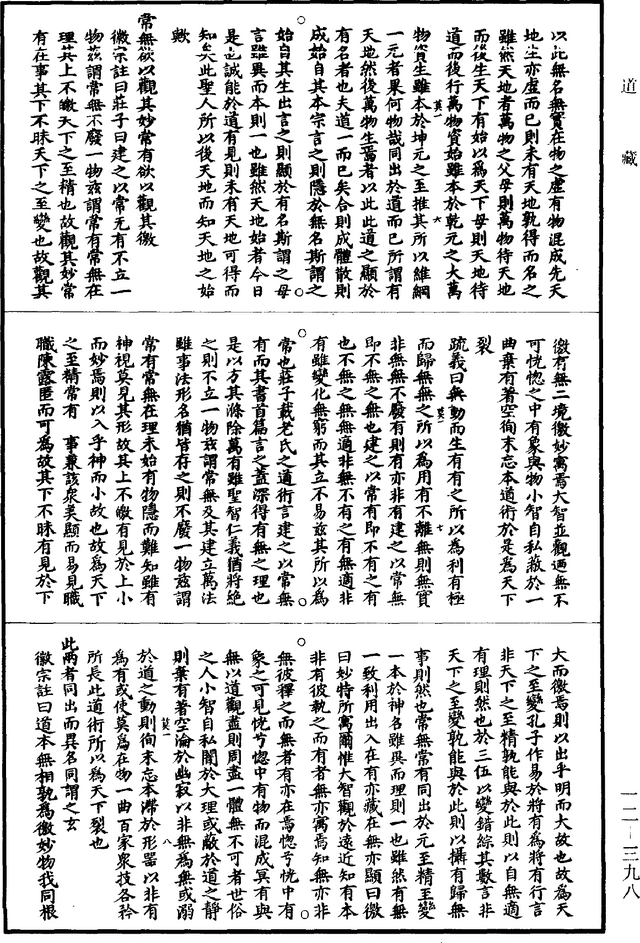 道藏
以此無名無實在物之虛有物混成先天
地生亦虛而已則未有天地孰得而名之
雖然天地者萬物之父母則萬物待天地
而後生天下有始以為天下母則天地待
道而後行萬物資始雖本於乾元之大萬
物資生雖本於坤元之至推其所以維綱
一元者果何物哉同出於道而已所謂有
天地然後萬物生焉者以此此道之顯於
有名者也夫道一而已矣合則成體散則
成始自其本宗言之則隱於無名斯謂之
始自其生出言之則顯於有名斯謂之母
言雖異而本則一也雖然天地始者今日
是也誠能於道有見則未有天地可得而
知矣此聖人所以後天地而知天地之始
歟
常無欲以觀其妙常有欲以觀其徼
徽宗註曰莊子曰建之以常无有不立一
物茲謂常無不廢一物茲謂常有常無在
理其上不皦天下之至精也故觀其妙常
有在事其下不昧天下之至變也故觀其
徼有無二境徼妙寓焉大智並觀迺無不
可恍惚之中有象與物小智自私蔽於一
曲棄有著空徇末忘本道術於是為天下
裂
疏義曰無動而生有有之所以為利有極
而歸無無之所以為用有不離無則無實
非無無不廢有則有亦非有建之以常無
即不無之無也建之以常有即不有之有
也不無之無無適非無不有之有無適非
有雖變化無窮而其立不易茲其所以為
常也莊子載老氏之道術言建之以常無
有而其書首篇言之蓋深得有無之理也
是以方其滌除萬有雖聖智仁義猶將絕
之則不立一物茲謂常無及其建立萬法
雖事法形名猶皆存之則不廢一物茲謂
常有常無在理未始有物隱而難知雖有
神視莫見其形故其上不皦有見於上小
而妙焉則以入乎神而小故也故為天下
之至精常有 事兼該眾美顯而易見職
職陳露匿而可為故其下不昧有見於下
大而徼焉則以出乎明而大故也故為天
下之至變孔子作易於將有為將有行言
非天下之至精孰能與於此則以自無適
有理則然也於三伍以變錯綜其數言非
天下之至變孰能與於此則以攝有歸無
事則然也常無常有同出於元至精至變
一本於神名雖異而理則一也雖然有無
一致利用出入在有亦藏在無亦顯曰徼
曰妙特所寓爾惟大智觀於遠近知有本
非有彼執之而有者無亦寓焉知無亦非
無彼釋之而無者有亦在焉惚兮恍中有
象之可見恍兮惚中有物而混成冥有與
無以道觀盡則周盡一體無不可者世俗
之人小智自私闇於大理或蔽於道之靜
則棄有著空淪於幽寂以非無為無或溺
於道之動則徇末忘本滯於形器以非有
為有或使莫為在物一曲百家眾技各矜
所長此道術所以為天下裂也
此兩者同出而異名同謂之玄
徽宗註曰道本無相孰為徼妙物我同根
一二—三九八